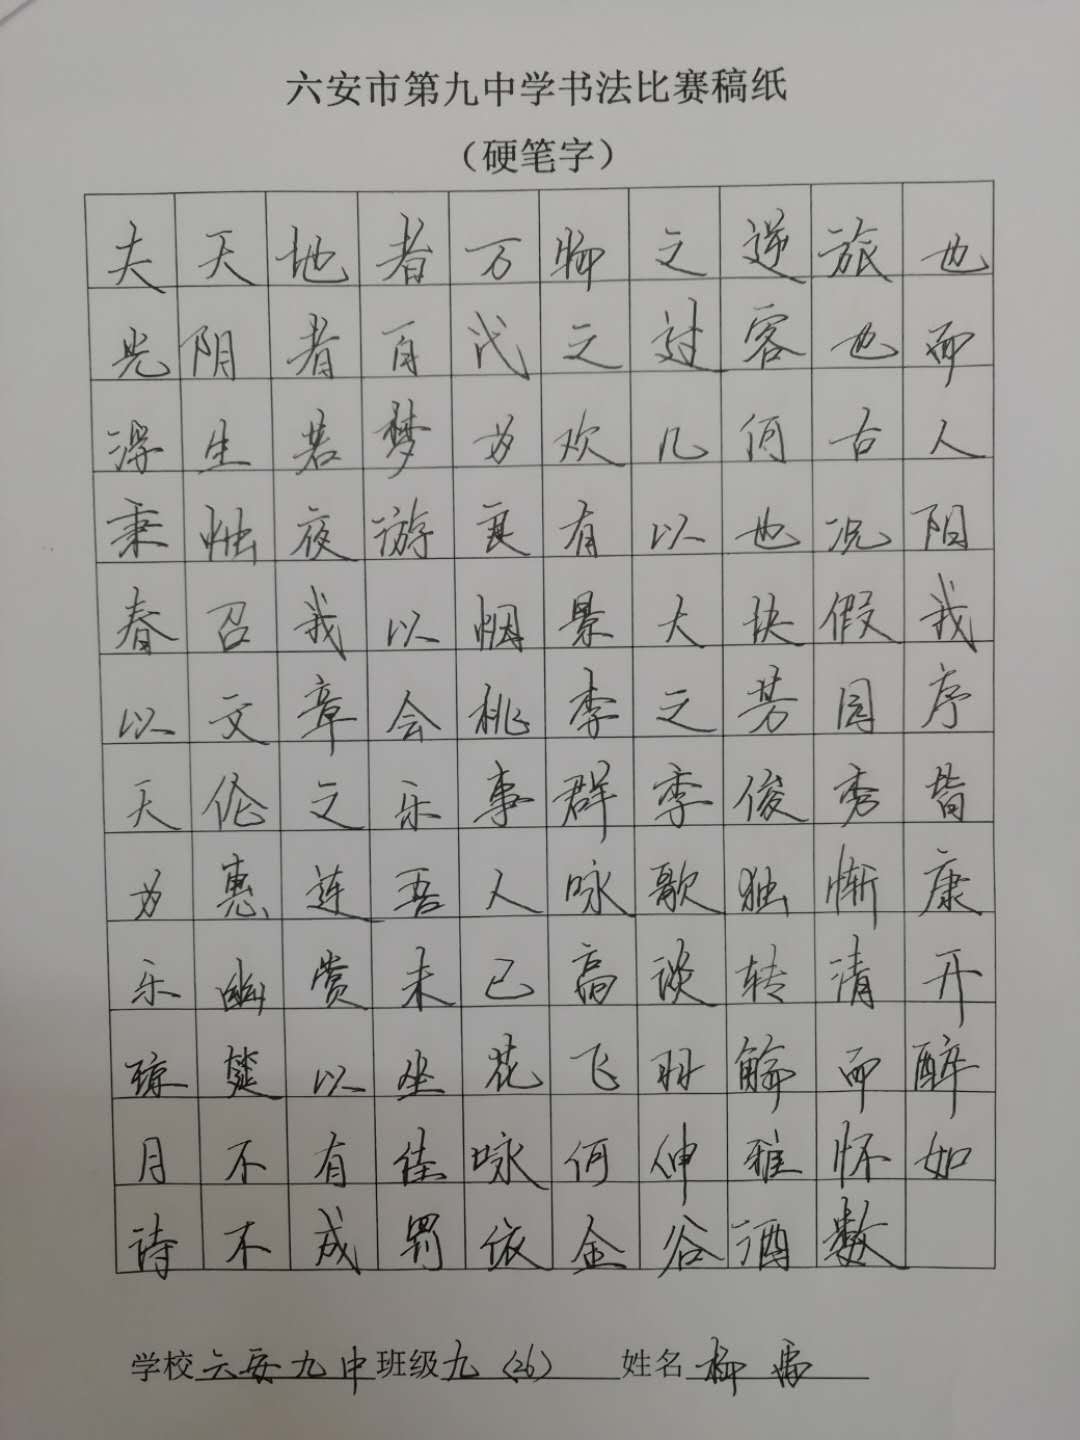 六安市第九中学书法比赛稿纸
（硬笔字）
夫天地者万物之逆旅也
光阴者百代之过客也而
浮生若梦为欢几何古人
秉烛夜游良有以也况阳
春召我以烟景大块假我
以文章会桃李之芳园序
天伦之乐事群季俊秀皆
为惠连吾人咏歌独惭康
乐幽赏未已高谈转清开
琼筵以坐花飞羽觞而醉
月不有佳咏何伸雅怀如
诗不成罚依金谷酒数
学校六安九中班级九(26) 姓名柳